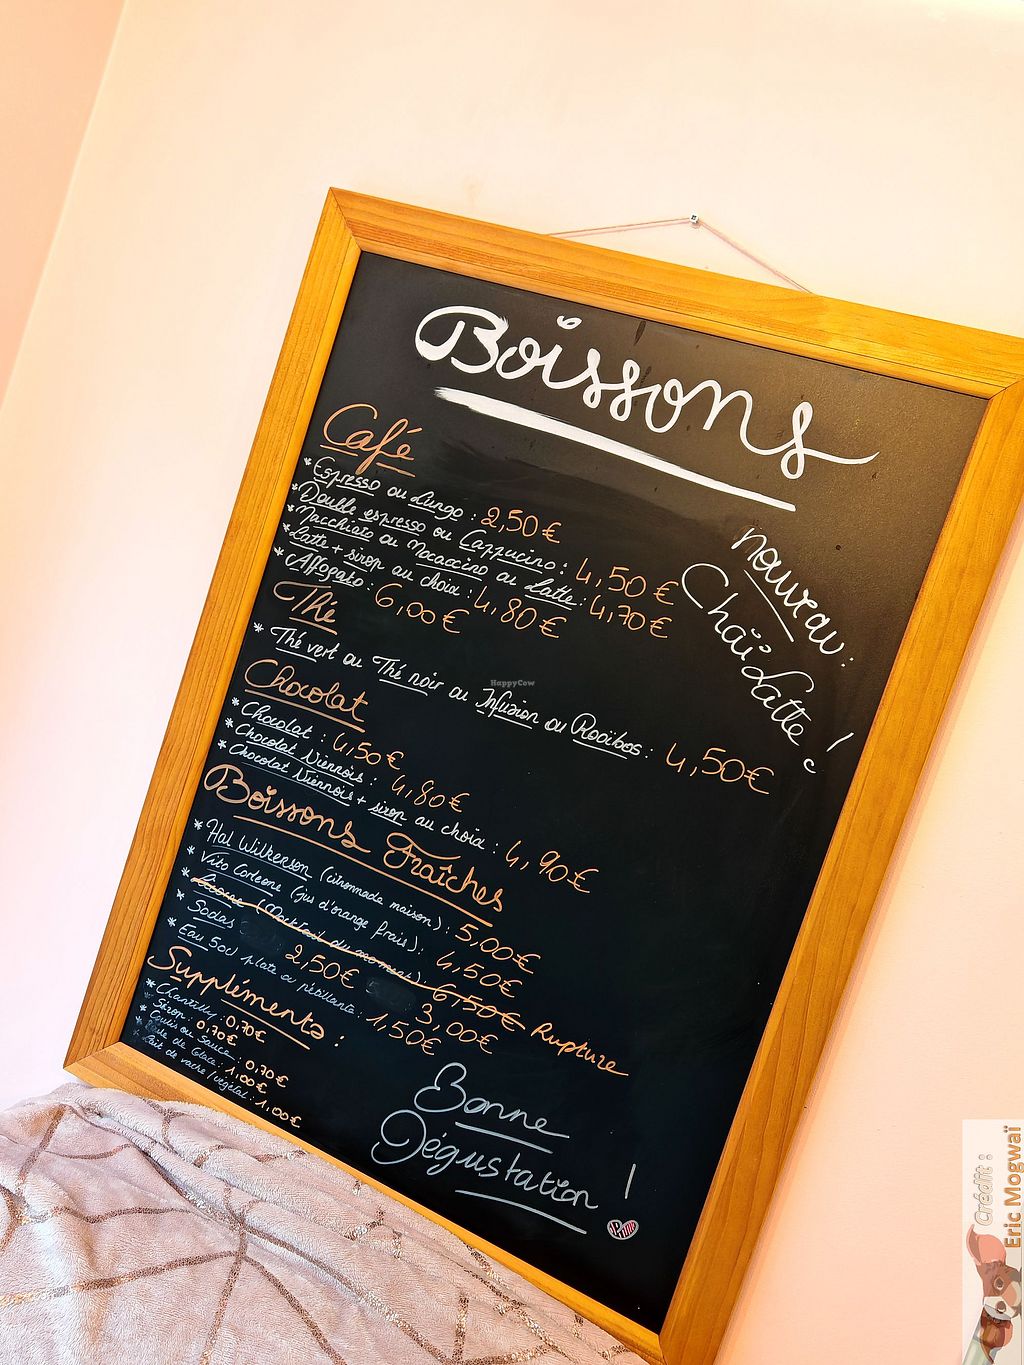 Boissons
Café
* Espresso ou Lungo : 2,50€
* Double espresso ou Cappucino : 4,50€
* Macchiato ou Mocaccino ou Latte : 4,70€
* Latte + sirop au choix : 4,80€
* Affogato : 6,00€
nouveau :
Chaï Latte !
Thé
* Thé vert ou Thé noir ou Infusion ou Rooibos : 4,50€
Chocolat
* Chocolat : 4,50€
* Chocolat Viennois : 4,80€
* Chocolat Viennois + sirop au choix : 4,90€
Boissons Fraîches
* Hal Wilkerson (citronnade maison) : 5,00€
* Vito Corleone (jus d'orange frais) : 4,50€
* Licorne (Mocktail du moment) : 6,50€ Rupture
* Sodas 2,50€ 3,00€
* Eau 50cl plate ou pétillante : 1,50€
Suppléments :
* Chantilly : 0,70€
* Sirop : 0,70€
* Coulis ou Sauce : 0,70€
* de Glace : 1,00€
* Lait de vache/végétal : 1,00€
Bonne
Dégustation !
HappyCow
Crédit :
Eric Mogwaï